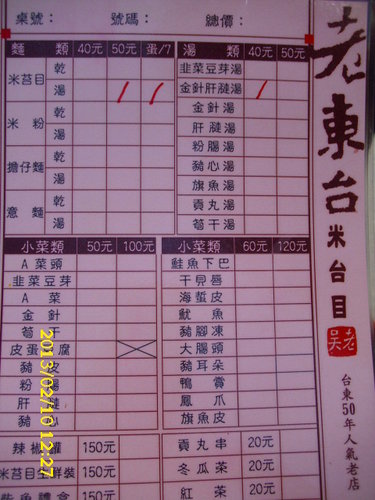 桌號： 號碼： 總價：
麵 類 40元 50元 蛋/7 湯 類 40元 50元
米苔目 乾
湯
米 粉 乾
湯
擔仔麵 乾
湯
意 麵 乾
湯
韭菜豆芽湯
金針肝腱湯
金針湯
肝腱湯
粉腸湯
豬心湯
旗魚湯
貢丸湯
筍干湯
小菜類 50元 100元 小菜類 60元 120元
A菜頭
韭菜豆芽
A 菜
金 針
筍 干
皮蛋 腐
豬
粉
肝
豬
鮭魚下巴
干貝唇
海蜇皮
魷 魚
豬腳凍
大腸頭
豬耳朵
鴨 賞
鳳 爪
旗魚皮
辣椒罐 150元 貢丸串 20元
米苔目生鮮裝 150元 冬瓜茶 20元
柴魚禮盒 150元 紅 茶 20元
老東台
米台目
老吳
台東50年人氣老店
2013/02/10 12:27